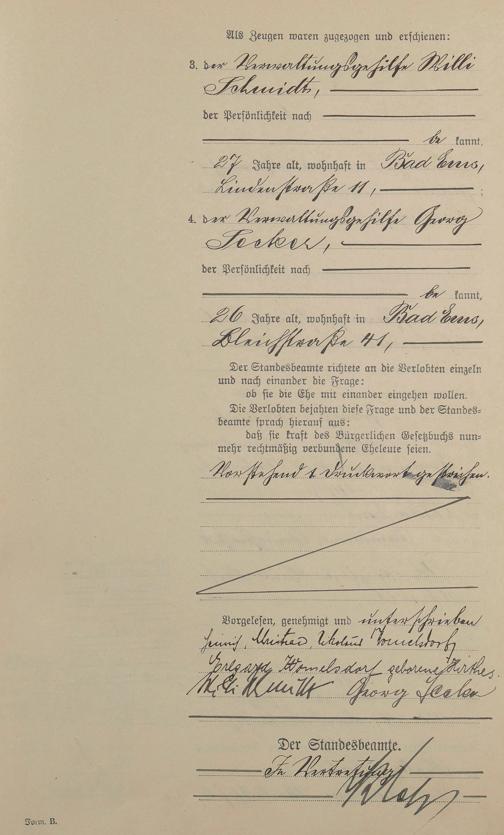 Als Zeugen waren zugezogen und erschienen:
3. der Verwaltungsgehilfe Willi
Schmidt,
der Persönlichkeit nach
be kannt,
27 Jahre alt, wohnhaft in Bad Ems,
Lindenstraße 11,
4. der Verwaltungsgehilfe Georg
der Persönlichkeit nach
be kannt,
26 Jahre alt, wohnhaft in Bad Ems,
Bleichstraße 41,
Der Standesbeamte richtete an die Verlobten einzeln
und nach einander die Frage:
ob sie die Ehe mit einander eingehen wollen.
Die Verlobten bejahten diese Frage und der Standes-
beamte sprach hierauf aus:
daß sie kraft des Bürgerlichen Gesetzbuchs nun-
mehr rechtmäßig verbundene Eheleute seien.
Vorstehend 1 Druckwort gestrichen.
Vorgelesen, genehmigt und unterschrieben
Heinrich, Christian, Nikolaus Womelsdorf
Womelsdorf geborene
Willi Schmidt Georg
Der Standesbeamte.
In Vertretung
Form. B.